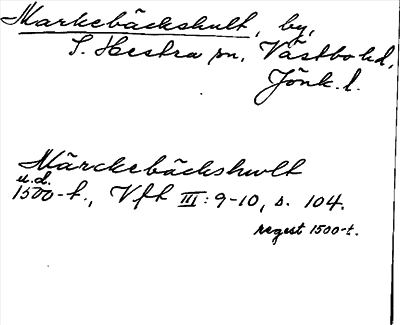 Markebäckshult, by,
S. Hestra sn, Västbo hd,
Jönk. l.
Märckebäckshult
u.d.
1500-t., Vft III: 9-10, s. 104.
regest 1500-t.